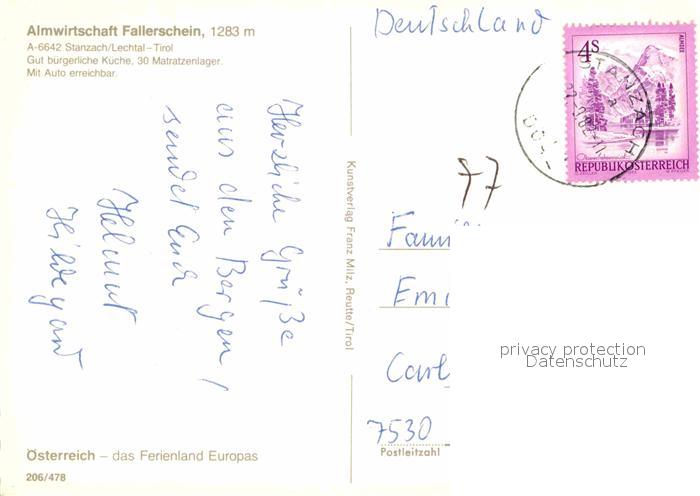 Almwirtschaft Fallerschein, 1283 m
A-6642 Stanzach/Lechtal-Tirol
Gut bürgerliche Küche, 30 Matratzenlager.
Mit Auto erreichbar.
Herzliche Grüße
aus den Bergen,
sendet Euch
Helmut
Hildegard
Österreich – das Ferienland Europas
206/478
Kunstverlag Franz Milz, Reutte/Tirol
Deutschland
4S
ALMSEE
STANZACH
REPUBLIK ÖSTERREICH
77
Fami
Emi
Carl
7530
Postleitzahl
privacy protection
Datenschutz